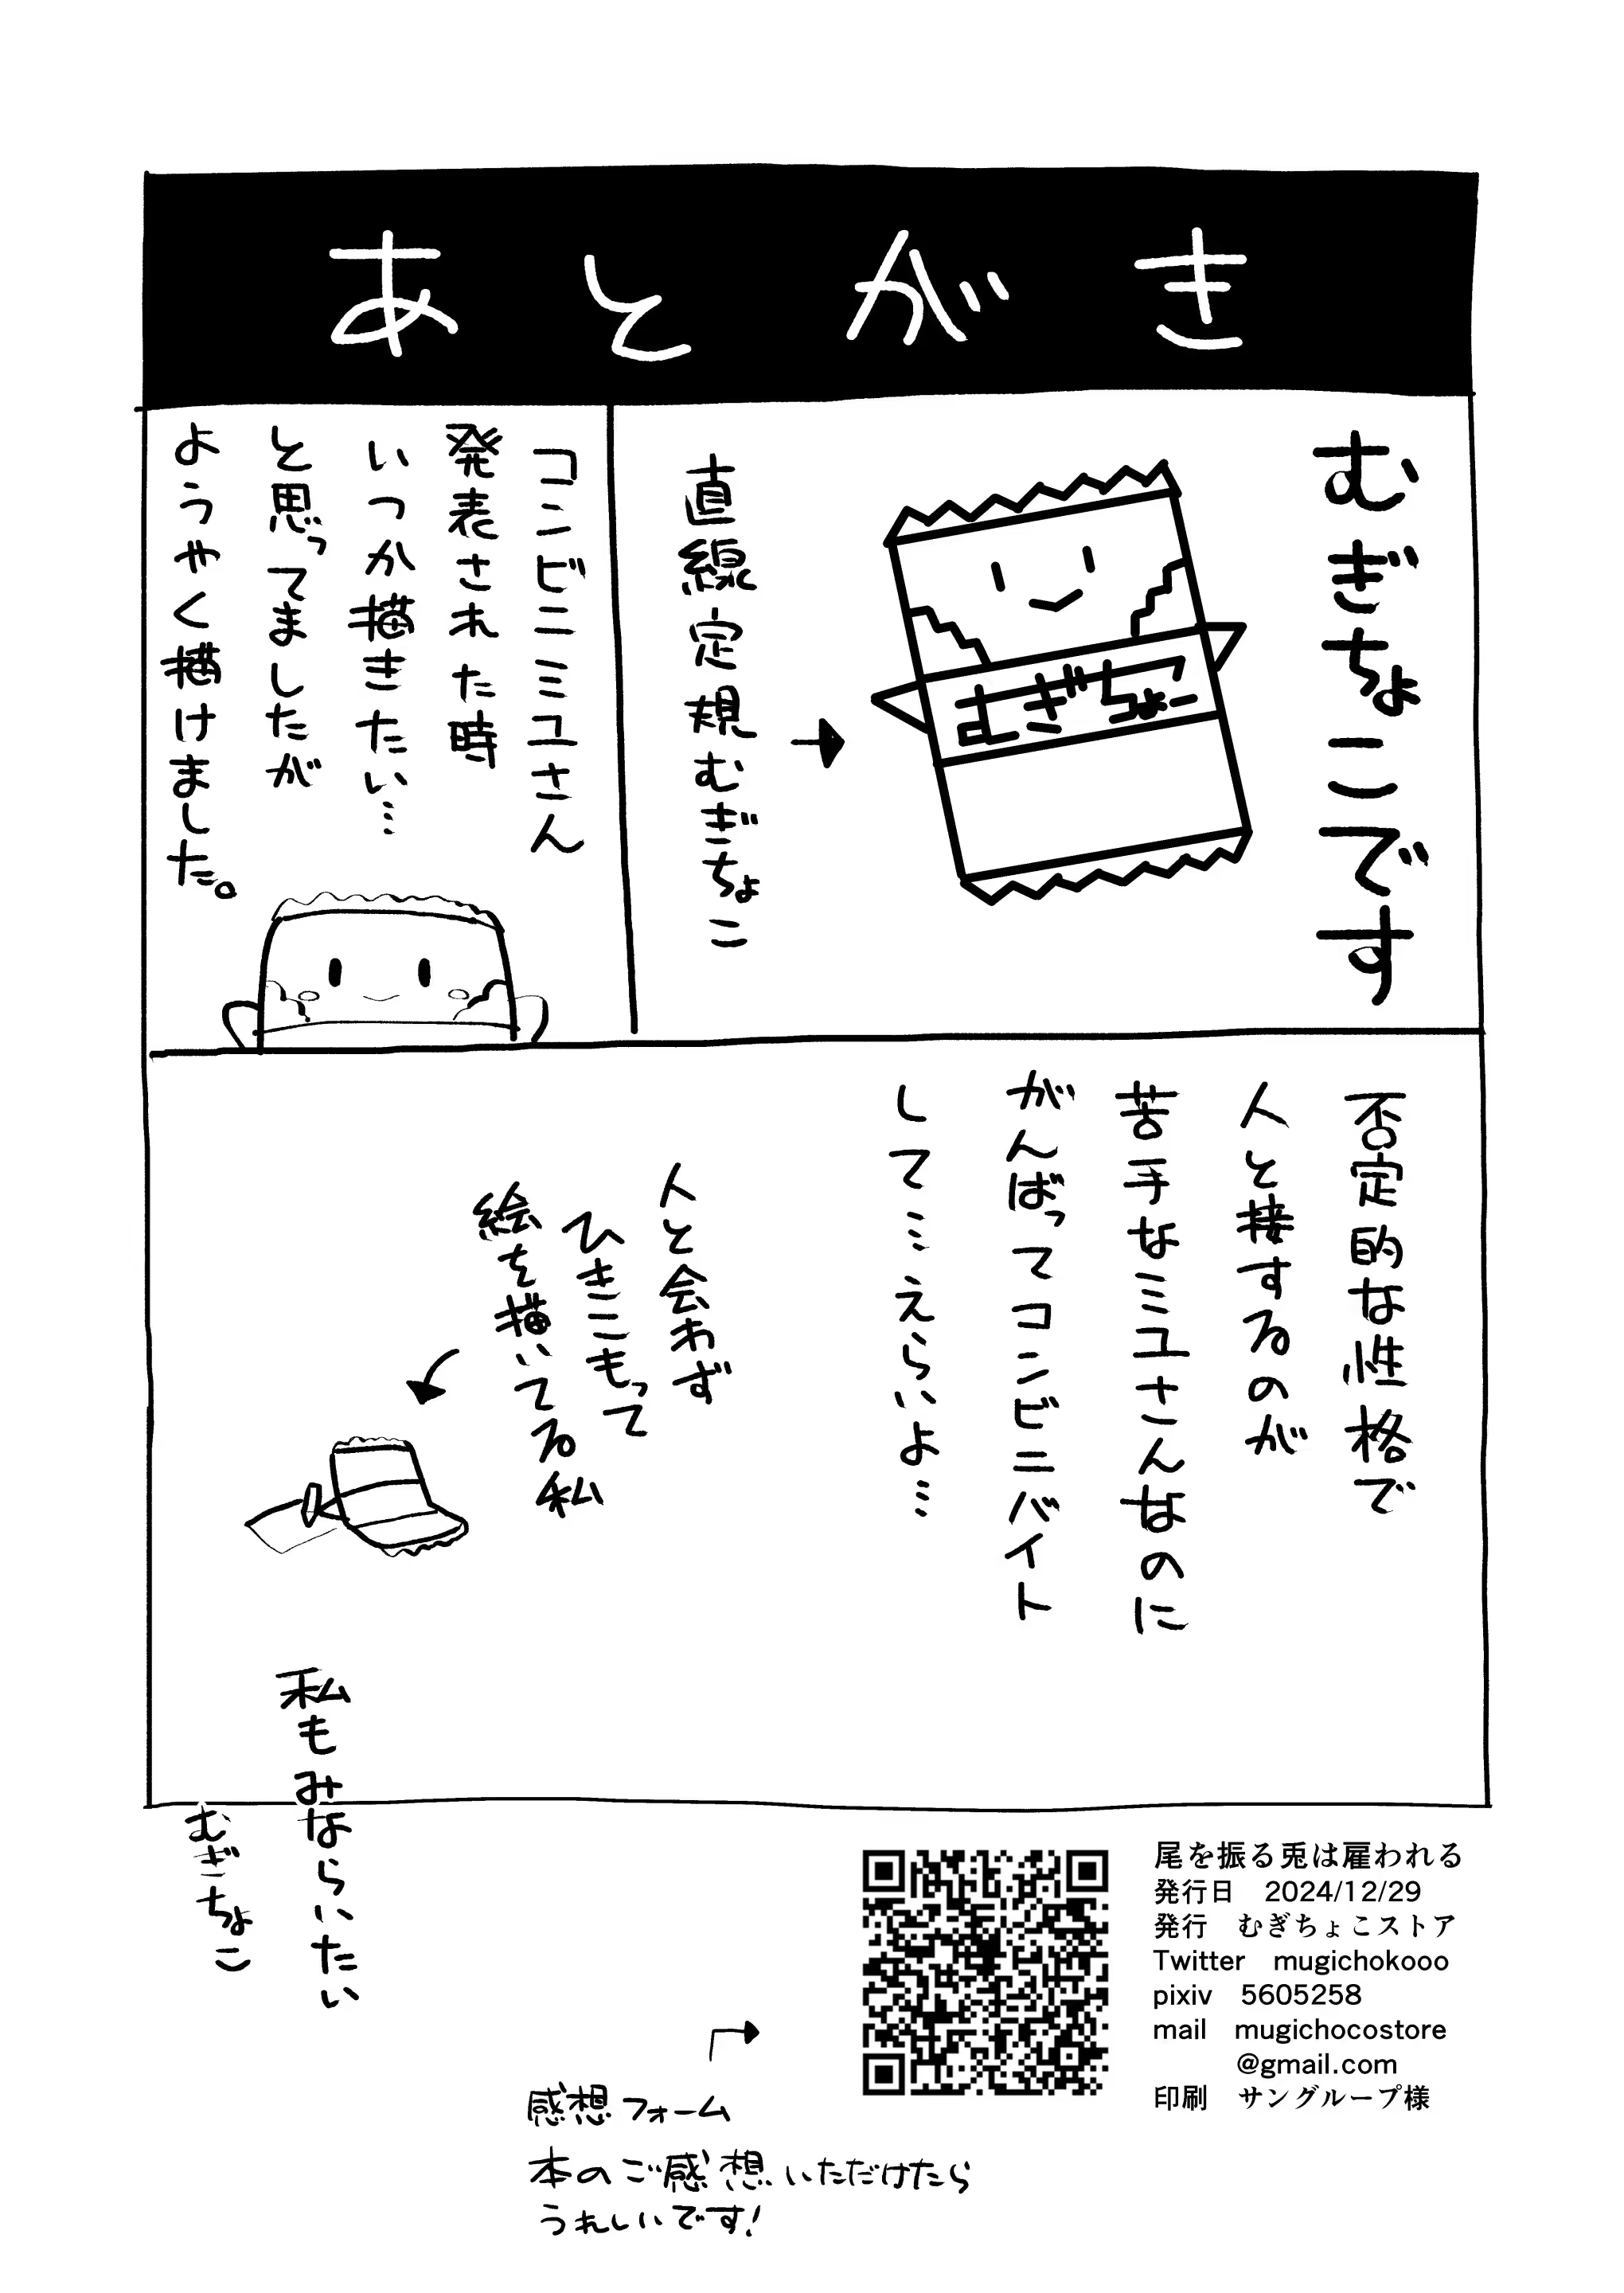 あとがき
むぎちょこです
むぎちょこ
直線定規むぎちょこ
コンビニミユさん
発表された時
いつか描きたい…
と思ってましたが
ようやく描けました。
否定的な性格で
人と接するのが
苦手なミユさんなのに
がんばってコンビニバイト
して…えらいよ…
人と会わず
ひきこもって
絵を描いてる私
私もみならいたい
むぎちょこ
尾を振る兎は雇われる
発行日 2024/12/29
発行 むぎちょこストア
Twitter mugichokooo
pixiv 5605258
mail mugichocostore
@gmail.com
印刷 サングループ様
感想フォーム
本のご感想いただけたら
うれしいです!